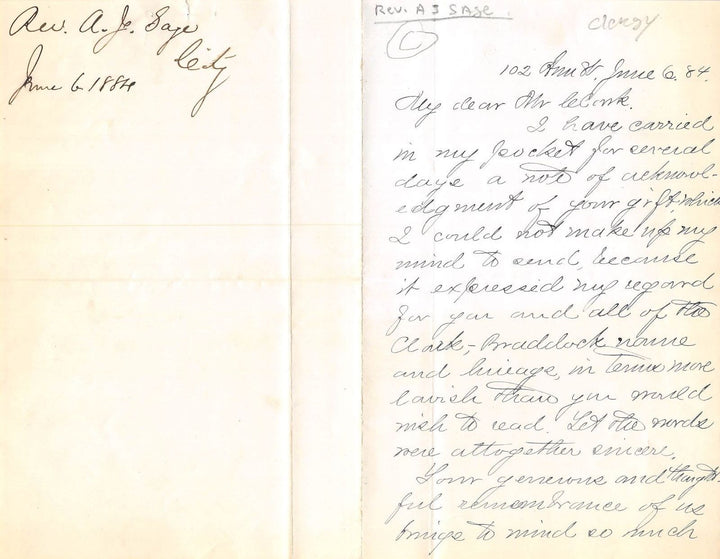 Rev. A. J. Sage
City
June 6 1884
Rev. A J SAGE.
clergy
102 Ann St. June 6. 84.
My dear Mr Clark.
I have carried
in my pocket for several
days a note of acknowl-
edgment of your gift, which
I could not make up my
mind to send, because
it expressed my regard
for you and all of the
Clark-Braddock name
and lineage, in terms more
lavish than you would
wish to read. Yet the words
were altogether sincere.
Your generous and thought-
ful remembrance of us
brings to mind so much